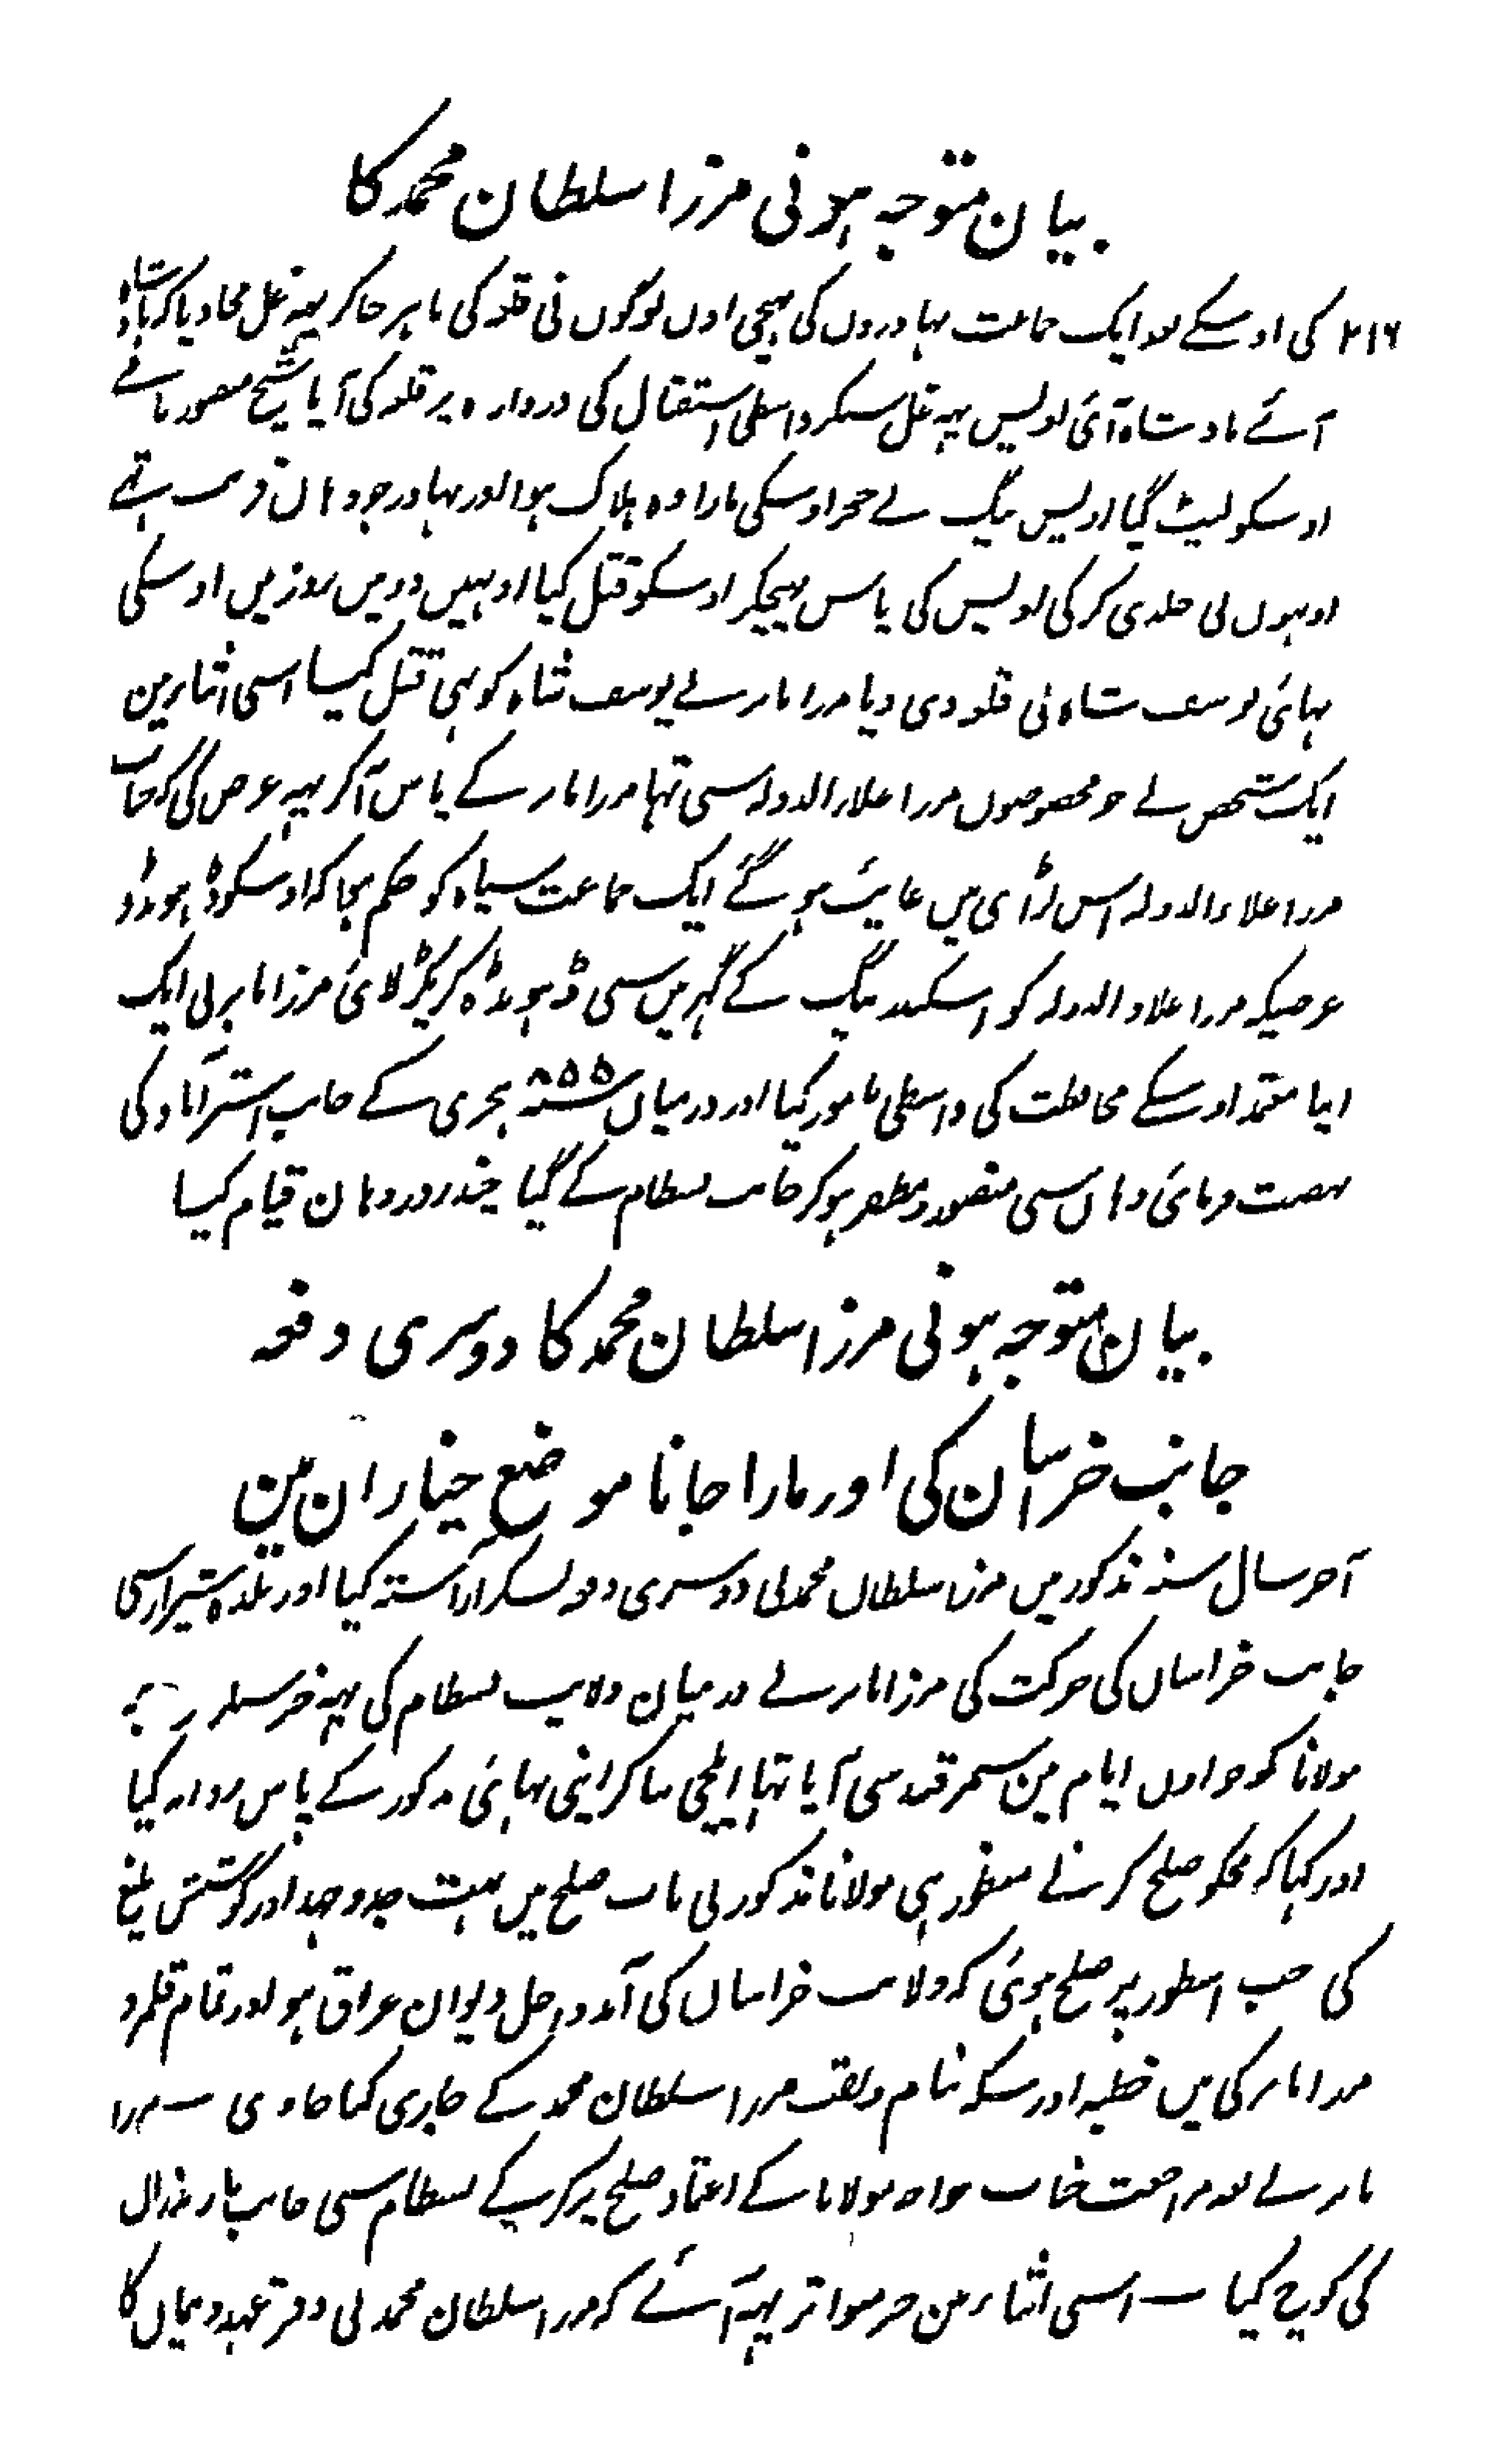 بیان متوجہ ہونی مرزا سلطان محمد کا
۲۱۶ کی اوسکے ایک جماعت بہادروں کی بہیجی اون لوگوں نی قلعہ کی باہر جاکر یہہ غل مچادیا کہ بادشاہ
آئے بادشاہ آئی اویس یہہ غل سنکر واسطی استقبال کی دروازہ پر قلعہ کی آیا شیخ منصور نے
اوسکو لپٹ گیا اویس بیگ نے خنجر اوسکی مارا وہ ہلاک ہوا اور بہادر جو وہان قریب تہے
اونہوں نی جلدی کرکی اویس کی پاس پہیچکر اوسکو قتل کیا اونہیں دو تین روز میں اوسکی
بہائی یوسف شاہ نی قلعہ دی دیا مرزا بابر نے یوسف شاہ کو بہی قتل کیا اسی اثنار مین
ایک شخص نے جو مخصوصوں مرزا علاء الدولہ سی تہا مرزا بابر کے پاس آکر یہہ عرض کی کہ جناب
مرزا علاء الدولہ اس لڑائی میں غایب ہوگئے ایک جماعت سپاہ کو حکم ہوا کہ اوسکو ڈہونڈو
غرضیکہ مرزا علاء الدولہ کو اسکندر بیگ کے گہر میں سی ڈہونڈہ کر پکڑ لائی مرزا بابر نی ایک
اپنا معتمد اوسکے محافظت کی واسطی مامور کیا اور درمیان سنہ ۸۵۵ ہجری کے جانب استرآباد کی
نہضت فرمائی وہاں سی منصور و مظفر ہوکر جانب بسطام کے گیا چند روز وہان قیام کیا
بیان متوجہ ہونی مرزا سلطان محمد کا دوسری دفعہ
جانب خراسان کی اور مارا جانا موضع چناران مین
آخر سال سنہ مذکور میں مرزا سلطان محمد نی دوسری دفعہ لشکر آراستہ کیا اور بلدہ شیراز سی
جانب خراسان کی حرکت کی مرزا بابر نے درمیان ولایت بسطام کی یہہ خبر سنکر
مولانا کو جو اول ایام مین سمرقند سی آیا تہا ایلچی بناکر اپنی بہائی مذکور کے پاس روانہ کیا
اور کہا کہ مجکو صلح کرنے منظور ہی مولانا مذکور نی باب صلح میں بہت جدوجہد اور کوشش بلیغ
کی جب اسطور پر صلح ہوئی کہ ولایت خراسان کی آمد داخل دیوان عراق ہو اور تمام قلمرو
مرزا بابر کی میں خطبہ اور سکہ بنام ولقب مرزا سلطان محمد کے جاری کیا جاوی ــ مرزا
بابر نے بعد مراجعت جناب خواجہ مولانا کے اعتماد صلح پر کرکے بسطام سی جانب مازندران
کی کوچ کیا ــ اسی اثنار مین خبر متواتر یہہ آئے کہ مرزا سلطان محمد نی دفتر عہد و پیمان کا